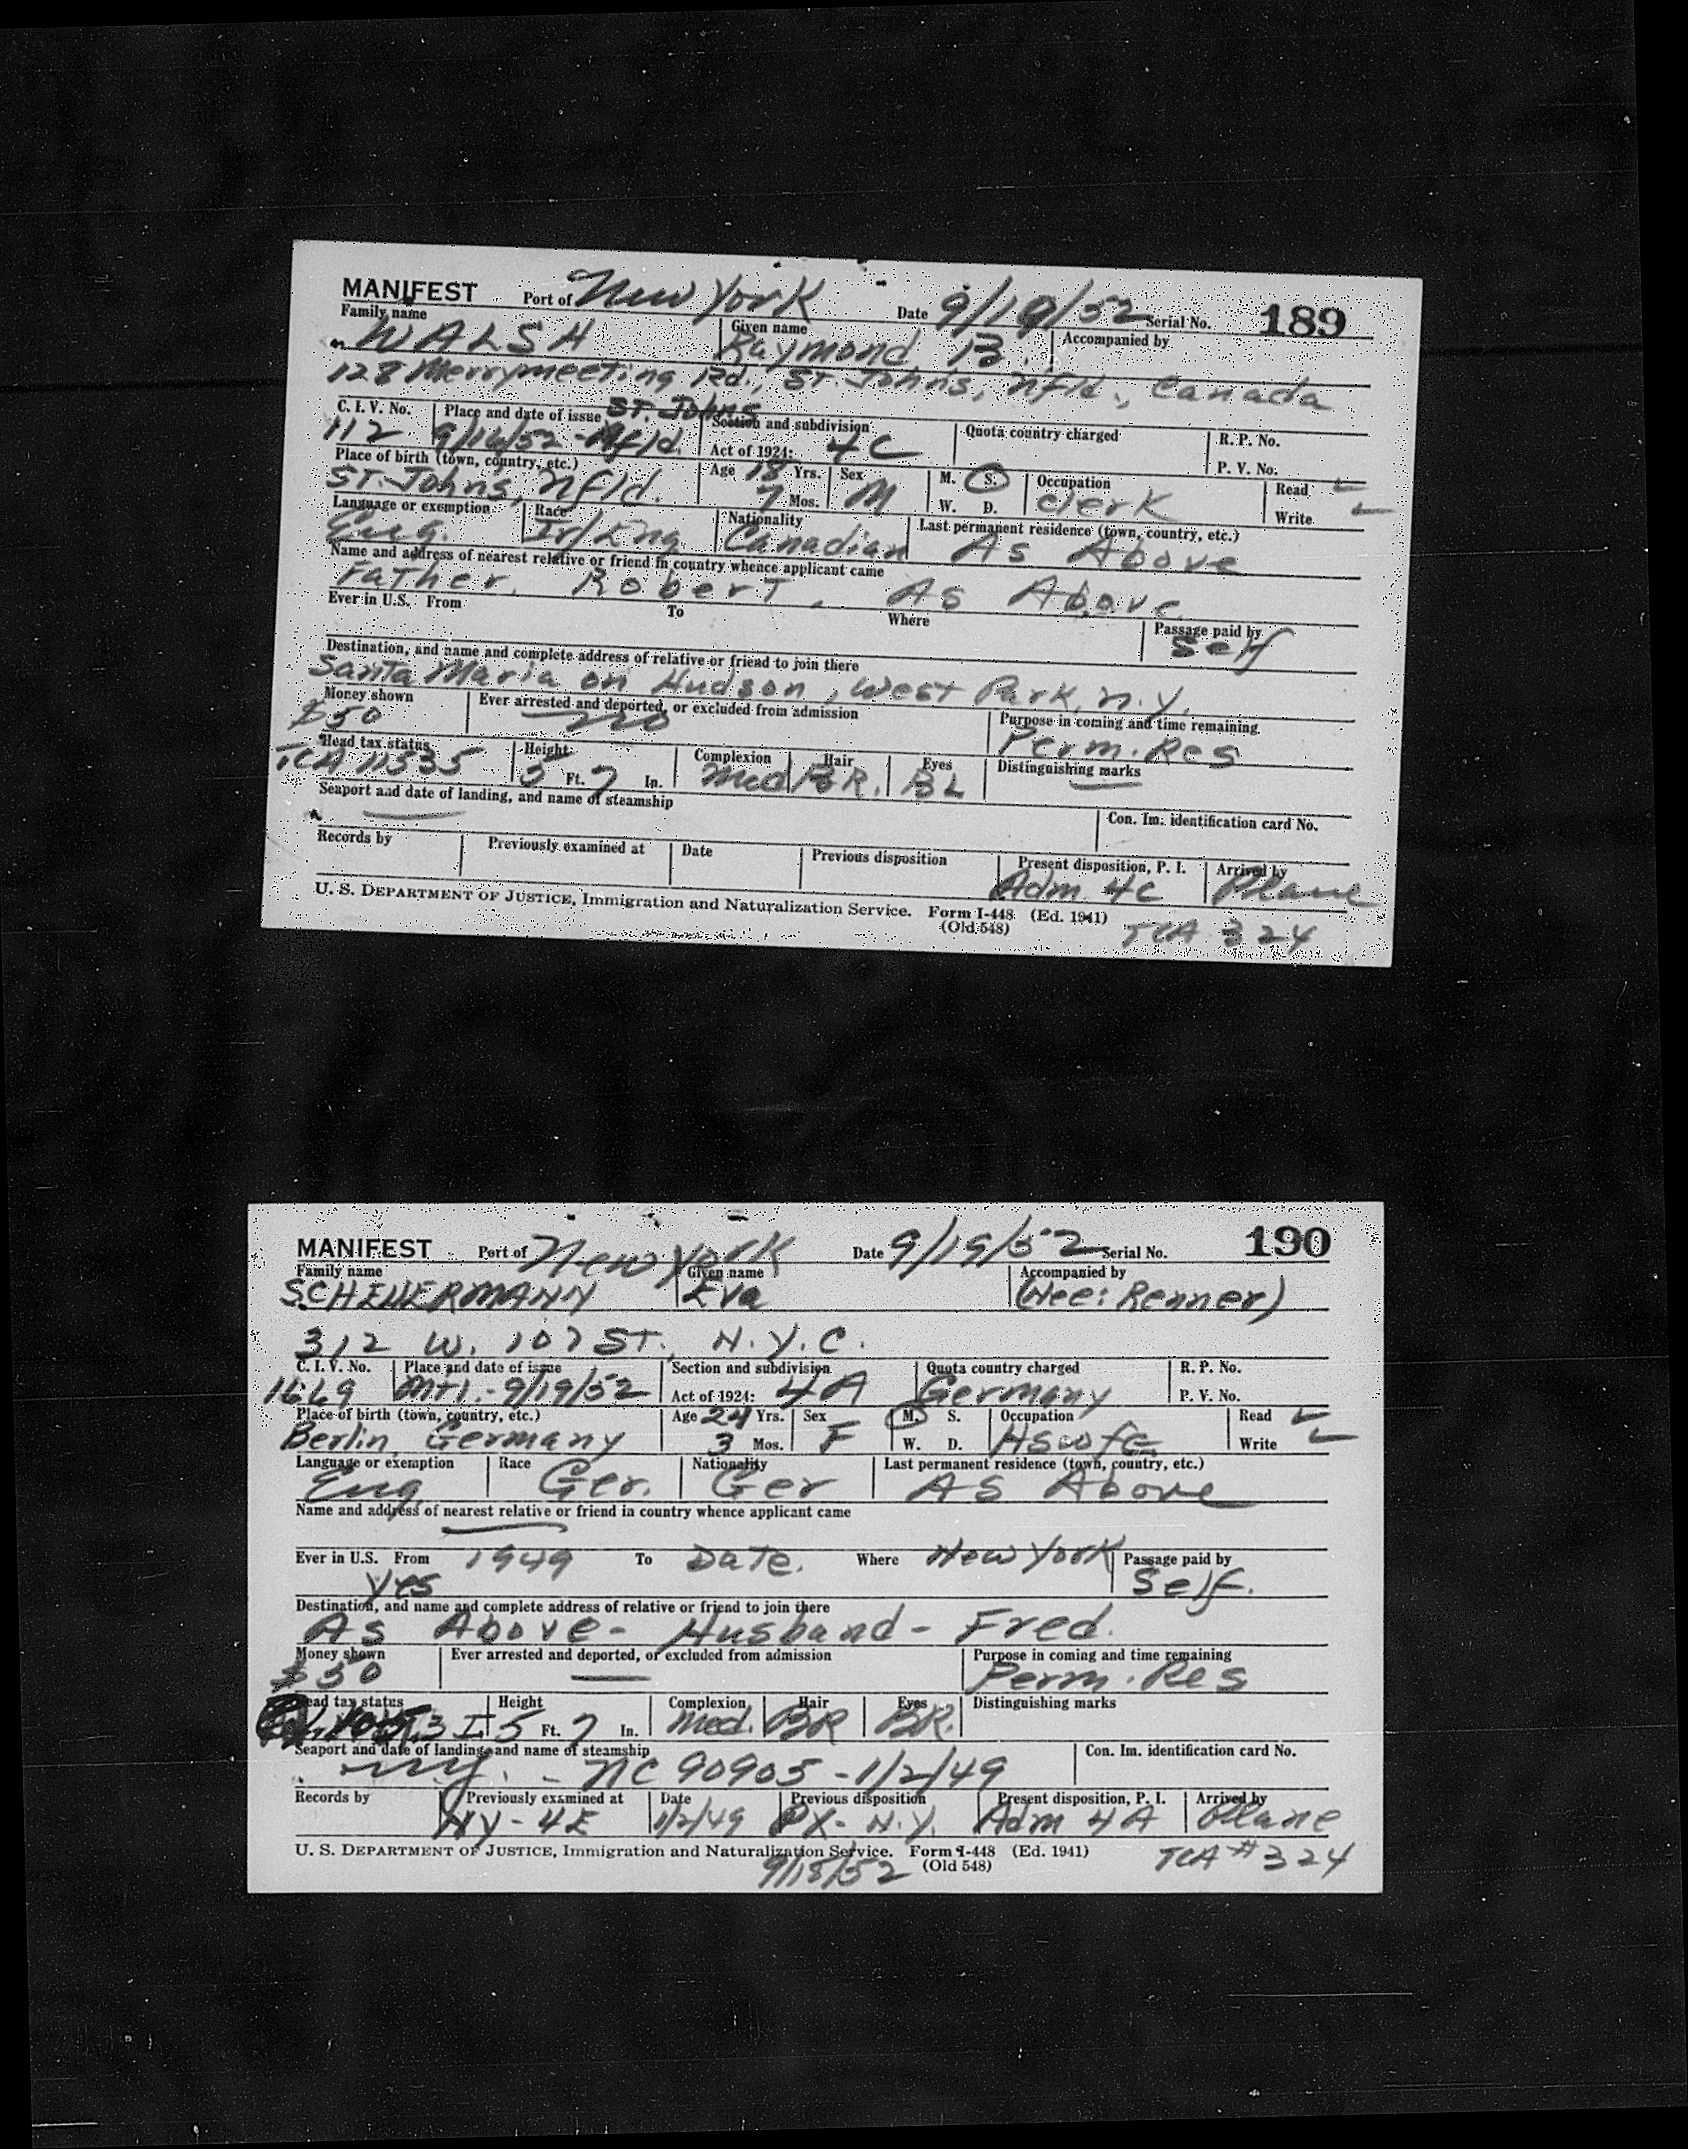 MANIFEST Port of New York Date 9/19/52 Serial No. 189
Family name Given name Accompanied by
WALSH Raymond B.
128 Merrymeeting Rd., St. Johns, Nfld., Canada
C. I. V. No. Place and date of issue St. Johns Section and subdivision Quota country charged R. P. No.
112 9/16/52 - Nfld. Act of 1924: 4C P. V. No.
Place of birth (town, country, etc.) Age 18 Yrs. Sex M. S. Occupation Read ✓
St. Johns, Nfld. 7 Mos. M W. D. Clerk Write ✓
Language or exemption Race Nationality Last permanent residence (town, country, etc.)
Eng. Ir/Eng Canadian As Above
Name and address of nearest relative or friend in country whence applicant came
Father, Robert, As Above
Ever in U.S. From To Where Passage paid by
Self
Destination, and name and complete address of relative or friend to join there
Santa Maria on Hudson, West Park, N.Y.
Money shown Ever arrested and deported, or excluded from admission Purpose in coming and time remaining
$50 no Perm. Res
Head tax status Height Complexion Hair Eyes Distinguishing marks
TCA 11535 5 Ft. 7 In. Med BR. BL —
Seaport and date of landing, and name of steamship Con. Im. identification card No.
—
Records by Previously examined at Date Previous disposition Present disposition, P. I. Arrived by
Adm 4C Plane
U. S. DEPARTMENT OF JUSTICE, Immigration and Naturalization Service. Form I-448 (Ed. 1941)
(Old 548) TCA 324
MANIFEST Port of New York Date 9/19/52 Serial No. 190
Family name Given name Accompanied by
SCHEUERMANN Eva (Nee: Renner)
312 W. 107 ST., N.Y.C.
C. I. V. No. Place and date of issue Section and subdivision Quota country charged R. P. No.
1669 Mtl. - 9/19/52 Act of 1924: 4A Germany P. V. No.
Place of birth (town, country, etc.) Age 24 Yrs. Sex M. S. Occupation Read ✓
Berlin, Germany 3 Mos. F W. D. Hswfe Write ✓
Language or exemption Race Nationality Last permanent residence (town, country, etc.)
Eng Ger. Ger As Above
Name and address of nearest relative or friend in country whence applicant came
—
Ever in U.S. From 1949 To Date. Where New York Passage paid by
Yes Self.
Destination, and name and complete address of relative or friend to join there
As Above - Husband - Fred.
Money shown Ever arrested and deported, or excluded from admission Purpose in coming and time remaining
$50 — Perm. Res
Head tax status Height Complexion Hair Eyes Distinguishing marks
5 Ft. 7 In. Med. BR BR.
Seaport and date of landing, and name of steamship Con. Im. identification card No.
NY. - NC 90905 - 1/2/49
Records by Previously examined at Date Previous disposition Present disposition, P. I. Arrived by
NY - 4E 1/2/49 PX - N.Y. Adm 4A Plane
U. S. DEPARTMENT OF JUSTICE, Immigration and Naturalization Service. Form I-448 (Ed. 1941) TCA #324
9/18/52 (Old 548)